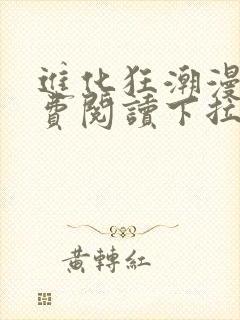 進化狂潮漫
費閱讀下拉
黃轉紅